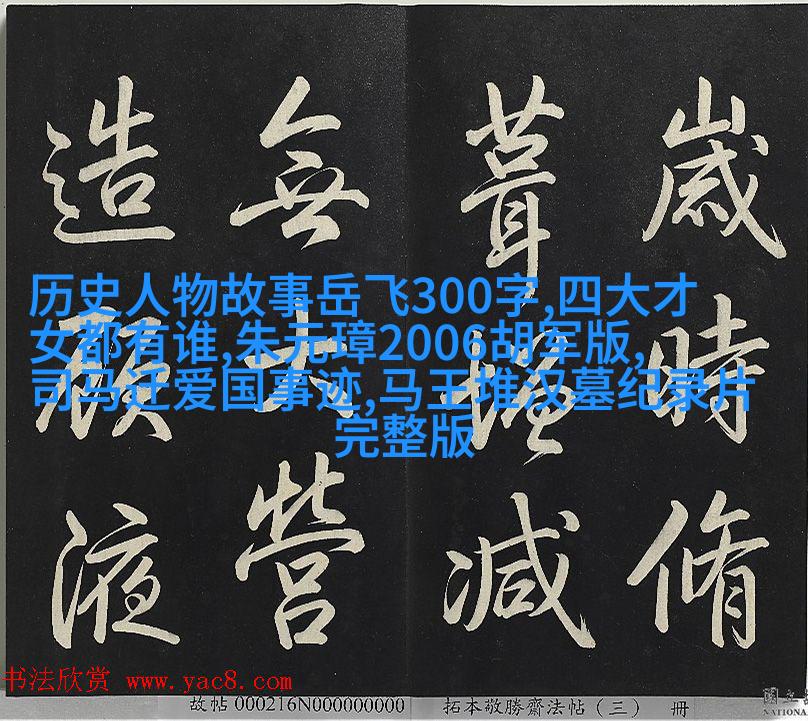 歲時脩
葺增減
無大營
造顧液
历史人物故事岳飞300字,四大才
女都有谁,朱元璋2006胡军版,
司马迁爱国事迹,马王堆汉墓纪录片
完整版
书法欣赏 www.yac8.com
故帖 000216N000000000 拓本敬勝齋法帖（三） 冊
國立